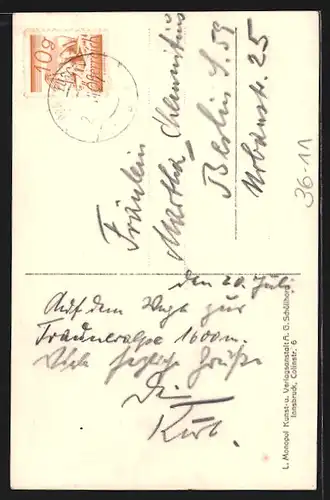 10g
Fräulein
Martha
Berlin S. 59
Urbanstr. 25
36-11
den 20. Juli
Auf dem Wege zur
1600 m.
Viele herzliche Grüße
Kurt.
L. Monopol Kunst- u. Verlagsanstalt A. G. Schöllhorn
Innsbruck, Colinstr. 6